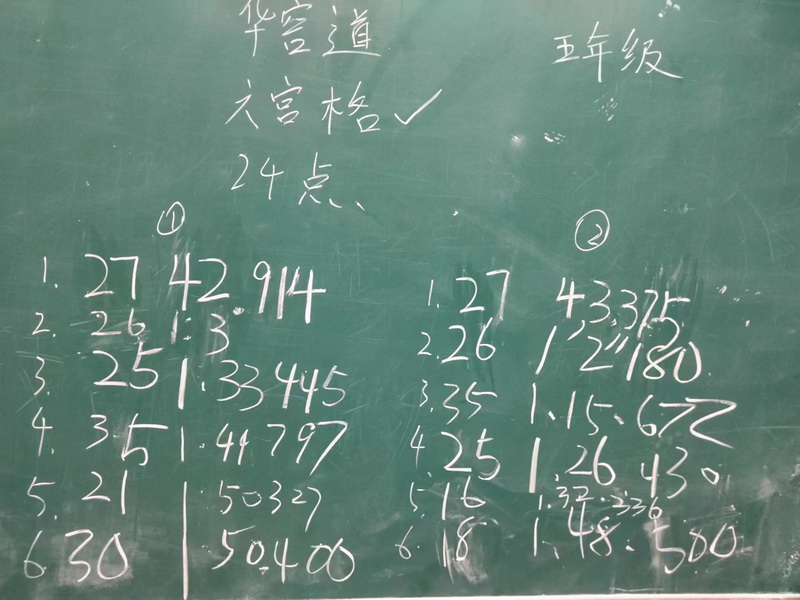 华容道
五年级
六宫格✓
24点、
①
1. 27 42.914
2. 26 1:3
3. 25 1.33445
4. 35 1.41797
5. 21 1.50327
6. 30 1.50.400
②
1. 27 43.375
2. 26 1'2"180
3. 35 1.15.672
4. 25 1.26.430
5. 16 1.32.336
6. 18 1.48.500